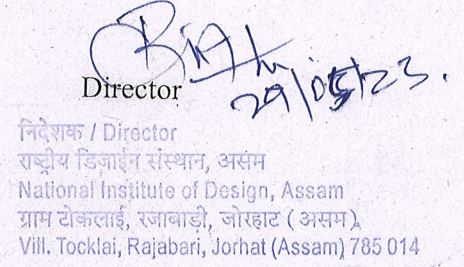 Director
29/05/23.
निदेशक / Director
राष्ट्रीय डिजाईन संस्थान, असम
National Institute of Design, Assam
ग्राम टोकलाई, रजाबाड़ी, जोरहाट (असम)
Vill. Tocklai, Rajabari, Jorhat (Assam) 785 014